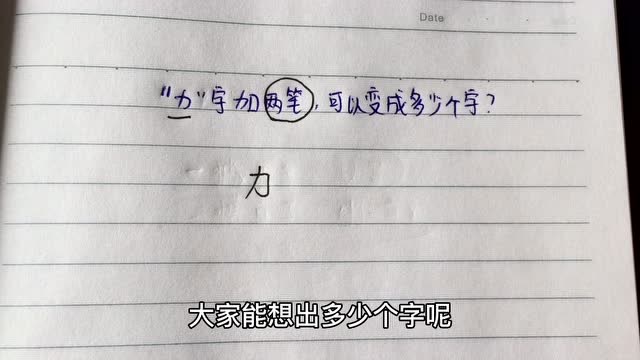 Date
"力"字加两笔,可以变成多少个字?
力
大家能想出多少个字呢